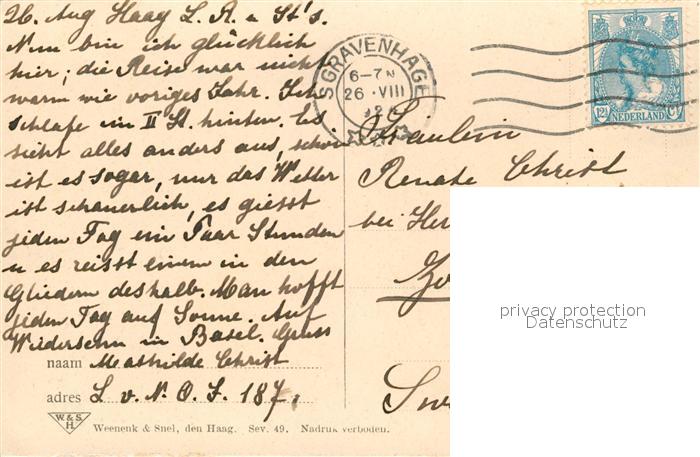 26. Aug Haag L. R. u St's.
Nun bin ich glücklich
hier; die Reise war nicht
warm wie voriges Jahr. Ich
schlafe im II St. hinten. Es
sieht alles anders aus, schön
ist es sogar, nur das Wetter
ist schauerlich, es giesst
jeden Tag ein Paar Stunden
u es reisst einem in den
Gliedern deshalb. Man hofft
jeden Tag auf Sonne. Auf
Wiedersehn in Basel. Gruss
naam Mathilde Christ
adres L. v. N. O. I. 187,
W.&S.
H.
Weenenk & Snel, den Haag. Sev. 49. Nadruk verboden.
'S GRAVENHAGE
6-7 N
26 .VIII
12½ NEDERLAND
Fräulein
Renate Christ
bei Her
privacy protection
Datenschutz